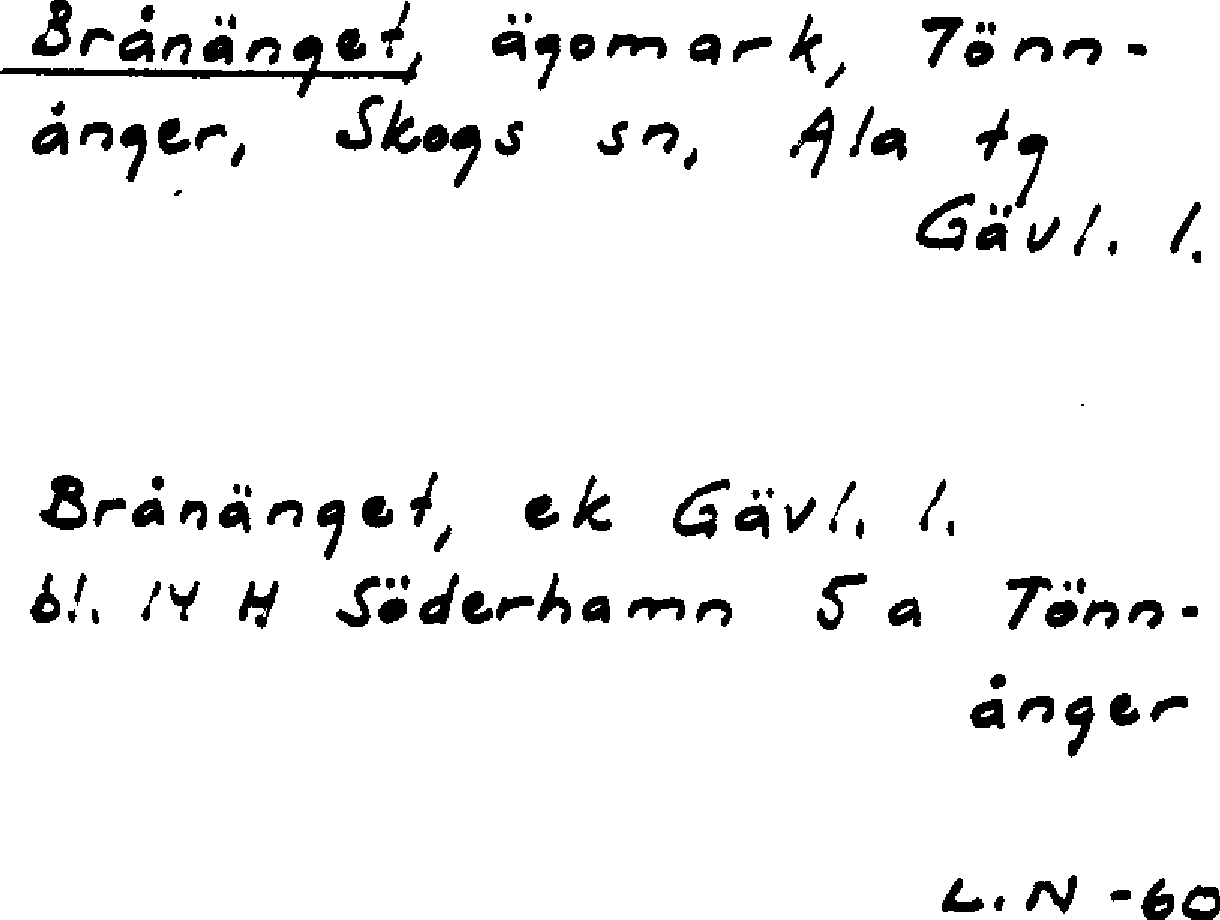 Brånänget, ägomark, Tönn-
ånger, Skogs sn, Ala tg
Gävl. l.
Brånänget, ek Gävl. l.
bl. 14 H Söderhamn 5 a Tönn-
ånger
L. N -60